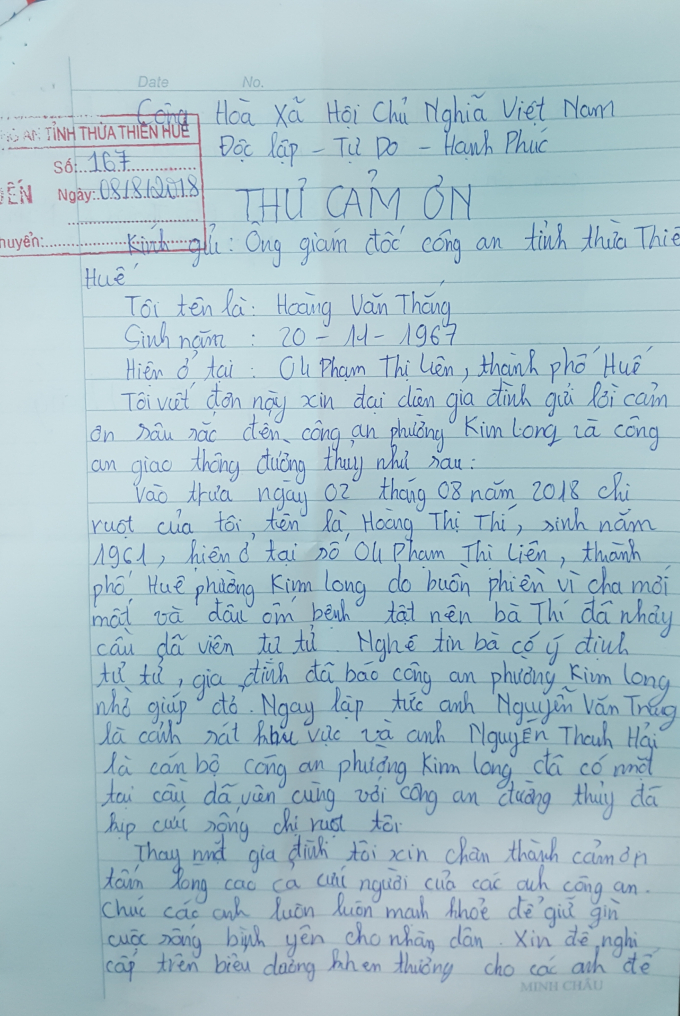 Date No.
Cộng Hoà Xã Hội Chủ Nghĩa Việt Nam
AN TỈNH THỪA THIÊN HUẾ
Độc lập - Tự Do - Hạnh Phúc
Số: 167
ĐẾN Ngày: 08/8/2018
THƯ CẢM ƠN
huyển:
Kính gửi: Ông giám đốc công an tỉnh thừa Thiê
Huế
Tôi tên là: Hoàng Văn Thắng
Sinh năm : 20 - 11 - 1967
Hiện ở tại : 04 Phạm Thị Liên, thành phố Huế
Tôi viết đơn này xin đại diện gia đình gửi lời cảm
ơn sâu sắc đến công an phường Kim Long và công
an giao thông đường thuỷ như sau:
Vào trưa ngày 02 tháng 08 năm 2018 chị
ruột của tôi tên là Hoàng Thị Thí, sinh năm
1961, hiện ở tại số 04 Phạm Thị Liên, thành
phố Huế phường Kim Long do buồn phiền vì cha mới
mất và đau ốm bệnh tật nên bà Thí đã nhảy
cầu dã viên tự tử. Nghe tin bà có ý định
tự tử, gia đình đã báo công an phường Kim Long
nhờ giúp đỏ. Ngay lập tức anh Nguyễn Văn
là cảnh sát khu vực và anh Nguyễn Thanh Hải
là cán bộ công an phường Kim Long đã có mặt
tại cầu dã viên cùng với công an đường thủy đã
kịp cứu sống chị ruột tôi
Thay mặt gia đình tôi xin chân thành cảm ơn
tấm lòng cao cả cứu người của các anh công an.
Chúc các anh luôn luôn mạnh khoẻ để giữ gìn
cuộc sống bình yên cho nhân dân. Xin đề nghị
cấp trên biểu dương khen thưởng cho các anh để
MINH CHÂU